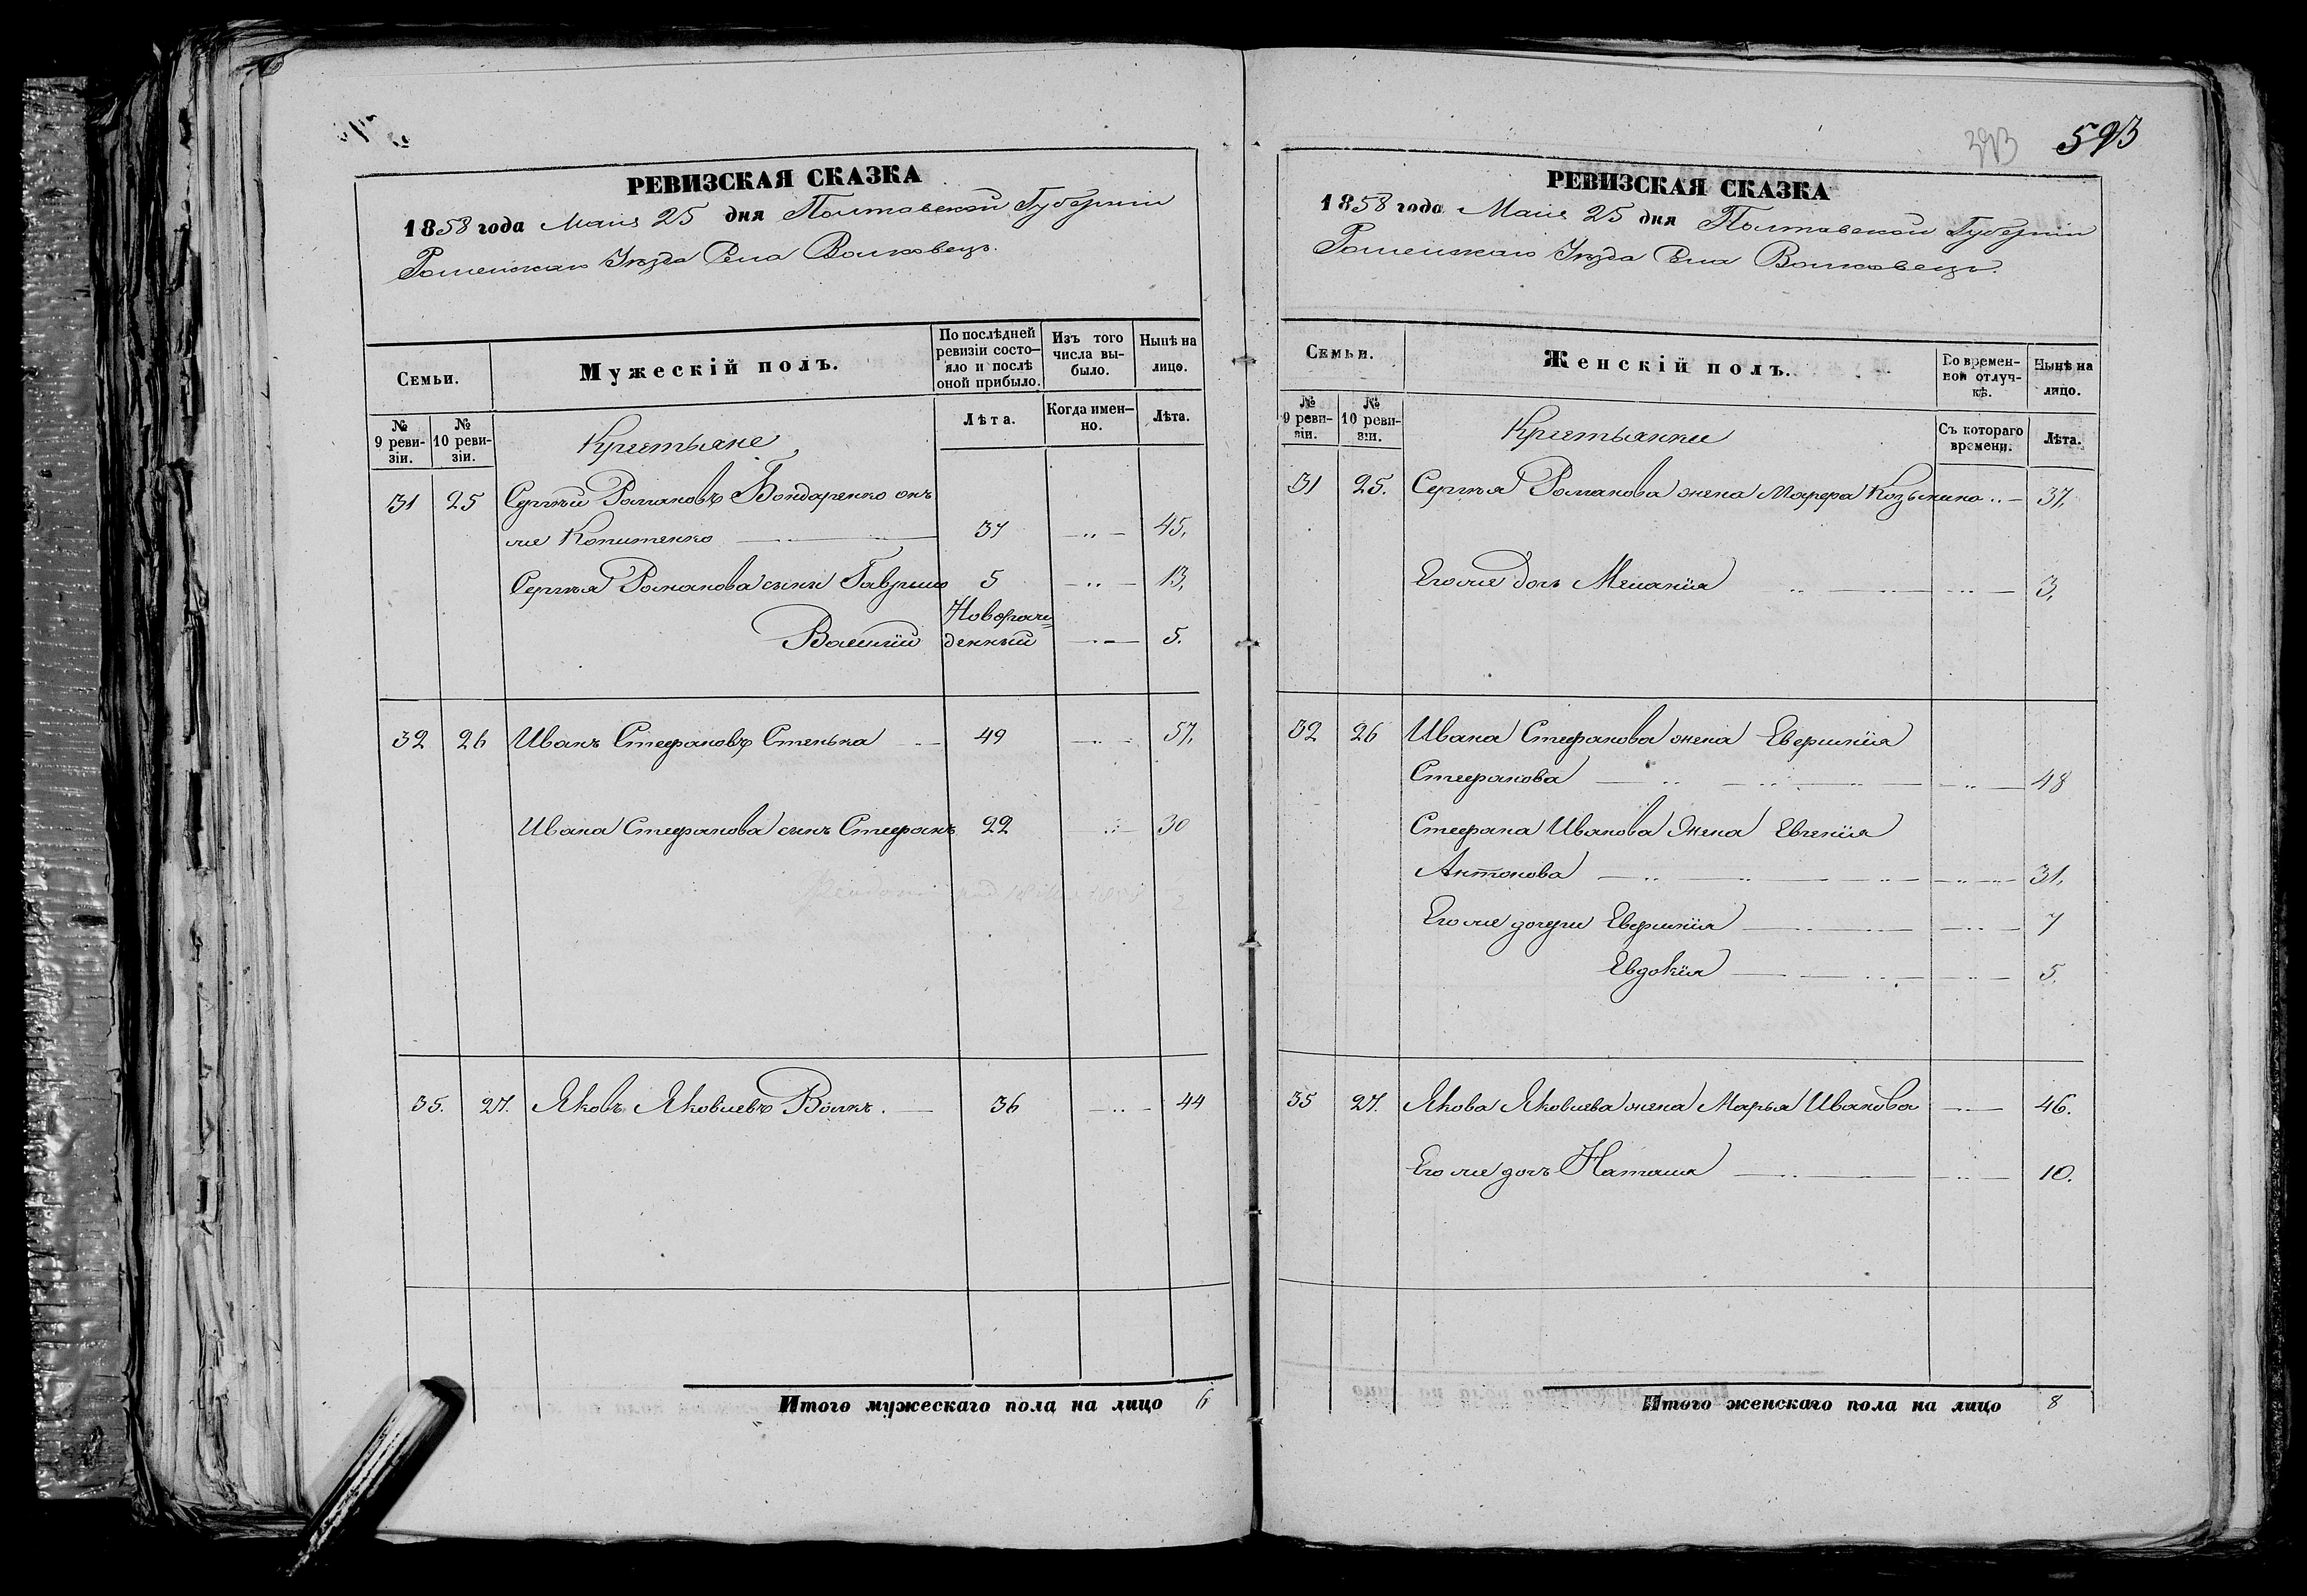 593
РЕВИЗСКАЯ СКАЗКА
1858 года Маия 25 дня Полтавской Губерніи
Роменскаго Уѣзда Села Волковецъ.
Семьи.
Мужескій полъ.
По послѣдней ревизіи состо-
яло и послѣ
оной прибыло.
Изъ того
числа вы-
было.
Нынѣ на
лицо.
№
9 реви-
зіи.
№
10 реви-
зіи.
Лѣта.
Когда имен-
но.
Лѣта.
Крестьяне
31 25 Сергѣй Романовъ Бондаренко онъ
же Копитенко 37 45.
Сергѣя Романова сыны Гаврыло 5 13.
Василій Новорож=
денный 5.
32 26 Иванъ Стефановъ Стенька 49 57.
Ивана Стефанова сынъ Стефанъ 22 30
35. 27. Яковъ Яковлевъ Волкъ. 36 44
Итого мужескаго пола на лицо 6
РЕВИЗСКАЯ СКАЗКА
1858 года Маия 25 дня Полтавской Губерніи
Роменскаго Уѣзда Села Волковецъ.
Семьи.
Женскій полъ.
Во времен-
ной отлуч-
кѣ.
Нынѣ на
лицо.
№
9 реви-
зіи.
№
10 реви-
зіи.
Съ котораго
времени.
Лѣта.
Крестьянки
31 25. Сергѣя Романова жена Марфа Козьмина 37.
Его же дочь Меланія 3.
32 26 Ивана Стефанова жена Евфимія
Стефанова 48
Стефана Иванова жена Евгенія
Антонова 31.
Его же дочери Евфимія 7
Евдокія 5.
35 27. Якова Яковлева жена Марья Иванова 46.
Его же дочь Наталия 10.
Итого женскаго пола на лицо 8